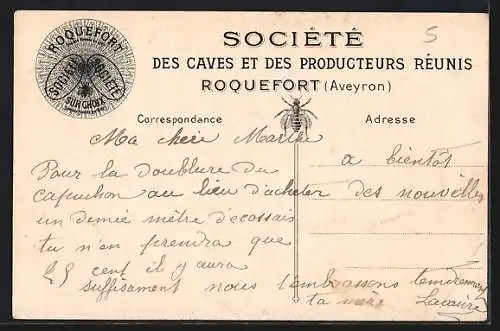 ROQUEFORT
SOCIÉTÉ
SOCIÉTÉ
SURCHOIX
5
SOCIÉTÉ
DES CAVES ET DES PRODUCTEURS RÉUNIS
ROQUEFORT (Aveyron)
Correspondance
Adresse
Ma chère Marthe
Pour la doublure du
capuchon au lieu d'acheter
un demie mètre d'ecossais
tu n'en prendra que
25 cent il y aura
suffisament nous t'embrassons tendrement
ta mère
a bientôt
des nouvelles